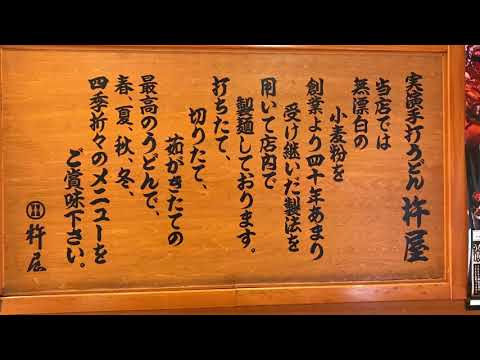 実演手打うどん 杵屋
当店では
無漂白の
小麦粉を
創業より四十年あまり
受け継いだ製法を
用いて店内で
製麺しております。
打ちたて、
切りたて、
茹がきたての
最高のうどんで、
春、夏、秋、冬、
四季折々のメニューを
ご賞味下さい。
杵屋